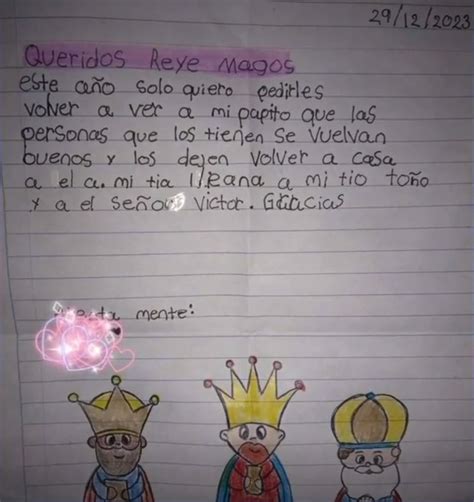 29/12/2023
Queridos Reye Magos
este año solo quiero pedirles
volver a ver a mi papito que las
personas que los tienen se vuelvan
buenos y los dejen volver a casa
a el a. mi tia liliana a mi tio toño
y a el señor Victor. Gracias
mente: